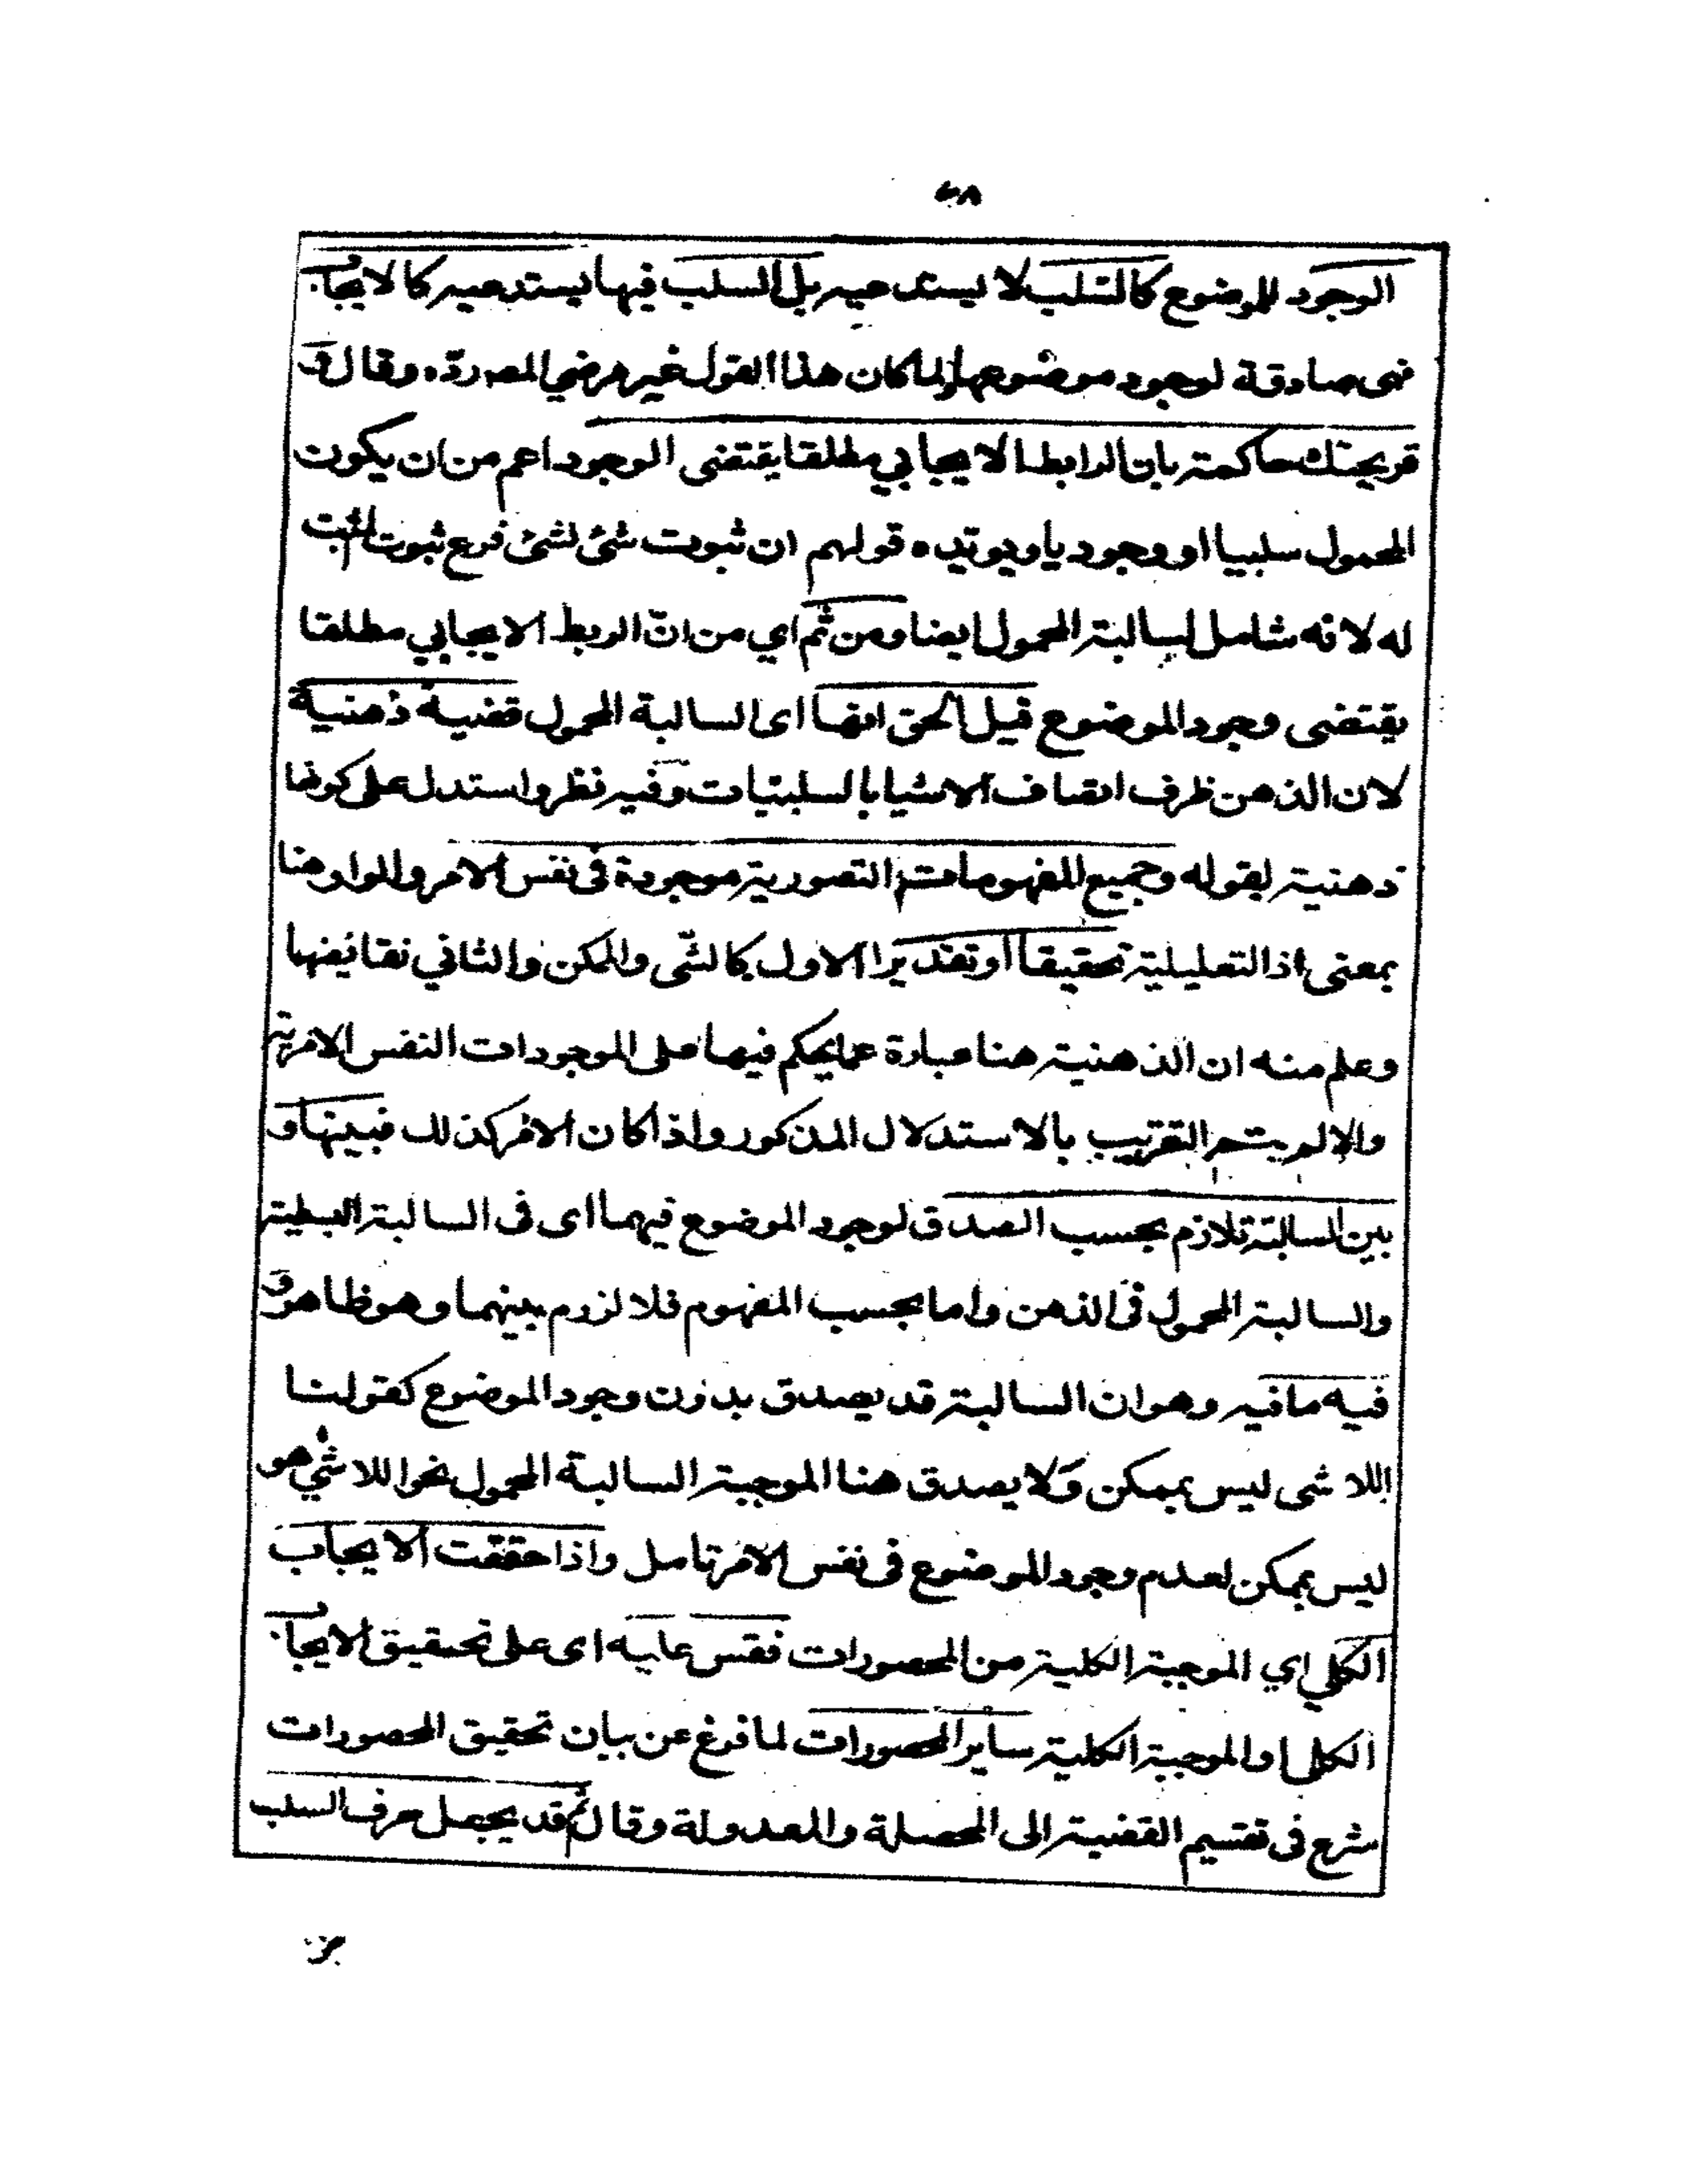 ٤٨
الوجود للموضوع كالسّلب لا يستدعيه بل السلب فيها يستدعيه كالايجاب
فهى صادقة لوجود موضوعها ولما كان هذا القول غير مرضي المصـ ردّه وقال و
قريحتك حاكمة بان الرابط الايجابي مطلقا يقتضى الوجود اعم من ان يكون
المحمول سلبيا او وجوديا ويويّده قولهم ان ثبوت شئ لشئ فرع ثبوت المثبت
له لانه شامل لسالبة المحمول ايضا ومن ثم اي من انّ الربط الايجابي مطلقا
يقتضى وجود الموضوع قيل الحق انها اى السالبة المحمول قضية ذهنية
لان الذهن ظرف اتصاف الاشيا بالسلبيّات وفيه نظر واستدل على كونها
ذهنية بقوله وجميع المفهومات التصورية موجودة فى نفس الامر والواو هنا
بمعنى اذ التعليلية تحقيقا او تقديرا الاول كالشّى والممكن والثاني نقائضها
وعلم منه ان الذهنية هنا عبارة عما يحكم فيها على الموجودات النفس الامرية
والا لم يتم التقريب بالاستدلال المذكور واذا كان الامر كذلك فبينها و
بين السالبة تلازم بحسب الصدق لوجود الموضوع فيهما اى فى السالبة البسيطة
والسالبة المحمول فى الذهن واما بحسب المفهوم فلا لزوم بينهما وهو ظاهر و
فيه ما فيه وهو ان السالبة قد يصدق بدون وجود الموضوع كقولنا
اللا شى ليس بممكن ولا يصدق هنا الموجبة السالبة المحمول نحو اللا شي هو
ليس بممكن لعدم وجود الموضوع فى نفس الامر تامل واذا حققت الايجاب
الكلي اي الموجبة الكلية من المحصورات فقس عليه اى على تحقيق الايجاب
الكلى او الموجبة الكلية ساير المحصورات لما فرغ عن بيان تحقيق المحصورات
شرع فى تقسيم القضية الى المحصلة والمعدولة وقال ثم قد يجعل حرف السلب